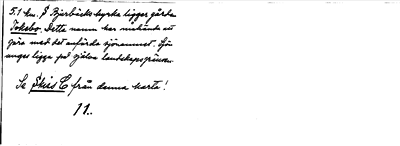 5.1 km. S Bjurbäcks kyrka ligger gården
Tokebo. Detta namn har måhända att
göra med det anförda sjönamnet. Sjön
anges ligga på själva landskapsgränsen.
Se Skirs C från denna karta!
11..